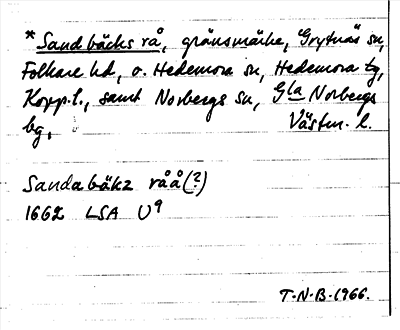 * Sandbäcks rå, gränsmärke, Grytnäs sn,
Folkare hd, o. Hedemora sn, Hedemora tg,
Kopp. l., samt Norbergs sn, Gla Norbergs
bg, Västm. l.
Sandabäkz råå(?)
1662 LSA U9
T.N.B. 1966.